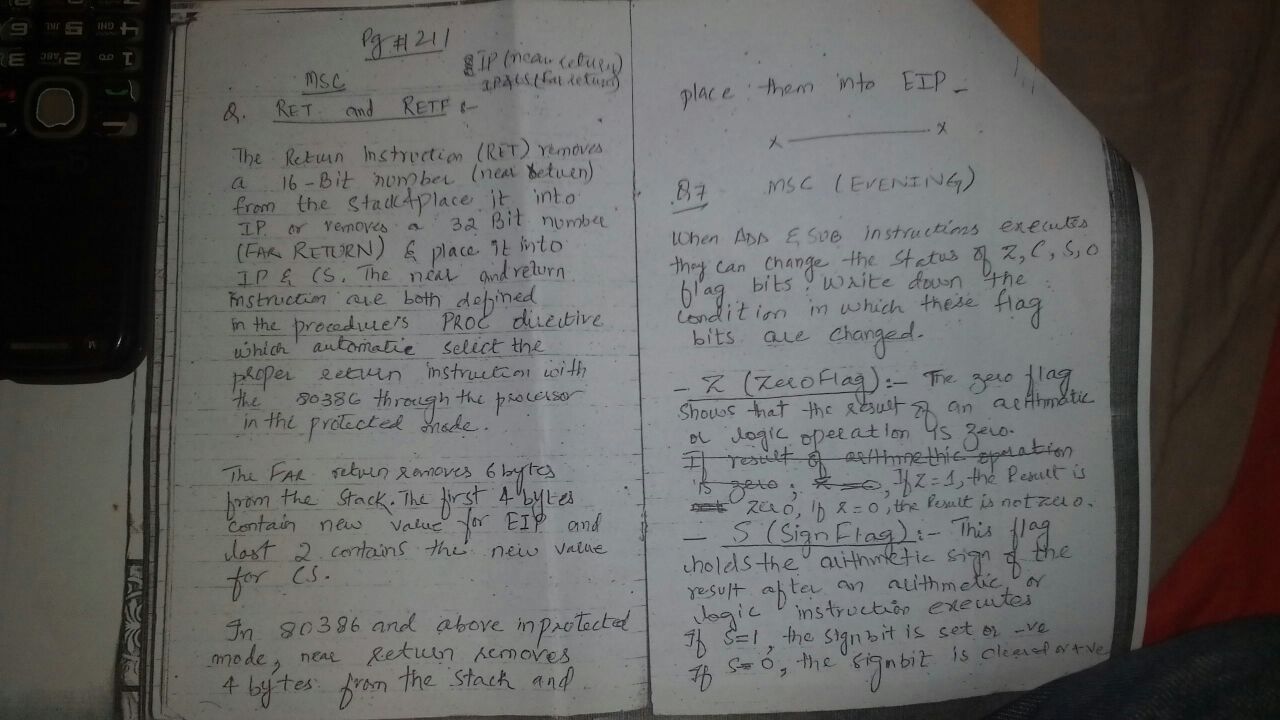 Pg # 211
IP (near return)
IP & CS (Far return)
MSC
Q. RET and RETF :-
The Return Instruction (RET) removes
a 16-Bit number (near return)
from the stack & place it into
IP or removes a 32 Bit number
(FAR RETURN) & place it into
IP & CS. The near and return
instruction are both defined
in the procedure's PROC directive
which automatic select the
proper return instruction with
the 80386 through the processor
in the protected mode.
The FAR return removes 6 bytes
from the stack. The first 4 bytes
contain new value for EIP and
last 2 contains the new value
for CS.
In 80386 and above in protected
mode, near return removes
4 bytes from the stack and
place them into EIP -
x ———— x
Q7 MSC (EVENING)
When ADD & SUB instructions executes
they can change the status of Z, C, S, O
flag bits. Write down the
condition in which these flag
bits are changed.
- Z (Zero Flag) :- The zero flag
shows that the result of an arithmatic
or logic operation is zero.
If result of arithmethic operation
is zero ; If Z = 1, the Result is
zero, if Z = 0, the Result is not zero.
- S (Sign Flag) :- This flag
holds the arithmetic sign of the
result after an arithmetic or
logic instruction executes
If S=1, the sign bit is set or -ve
If S=0, the sign bit is cleared or +ve